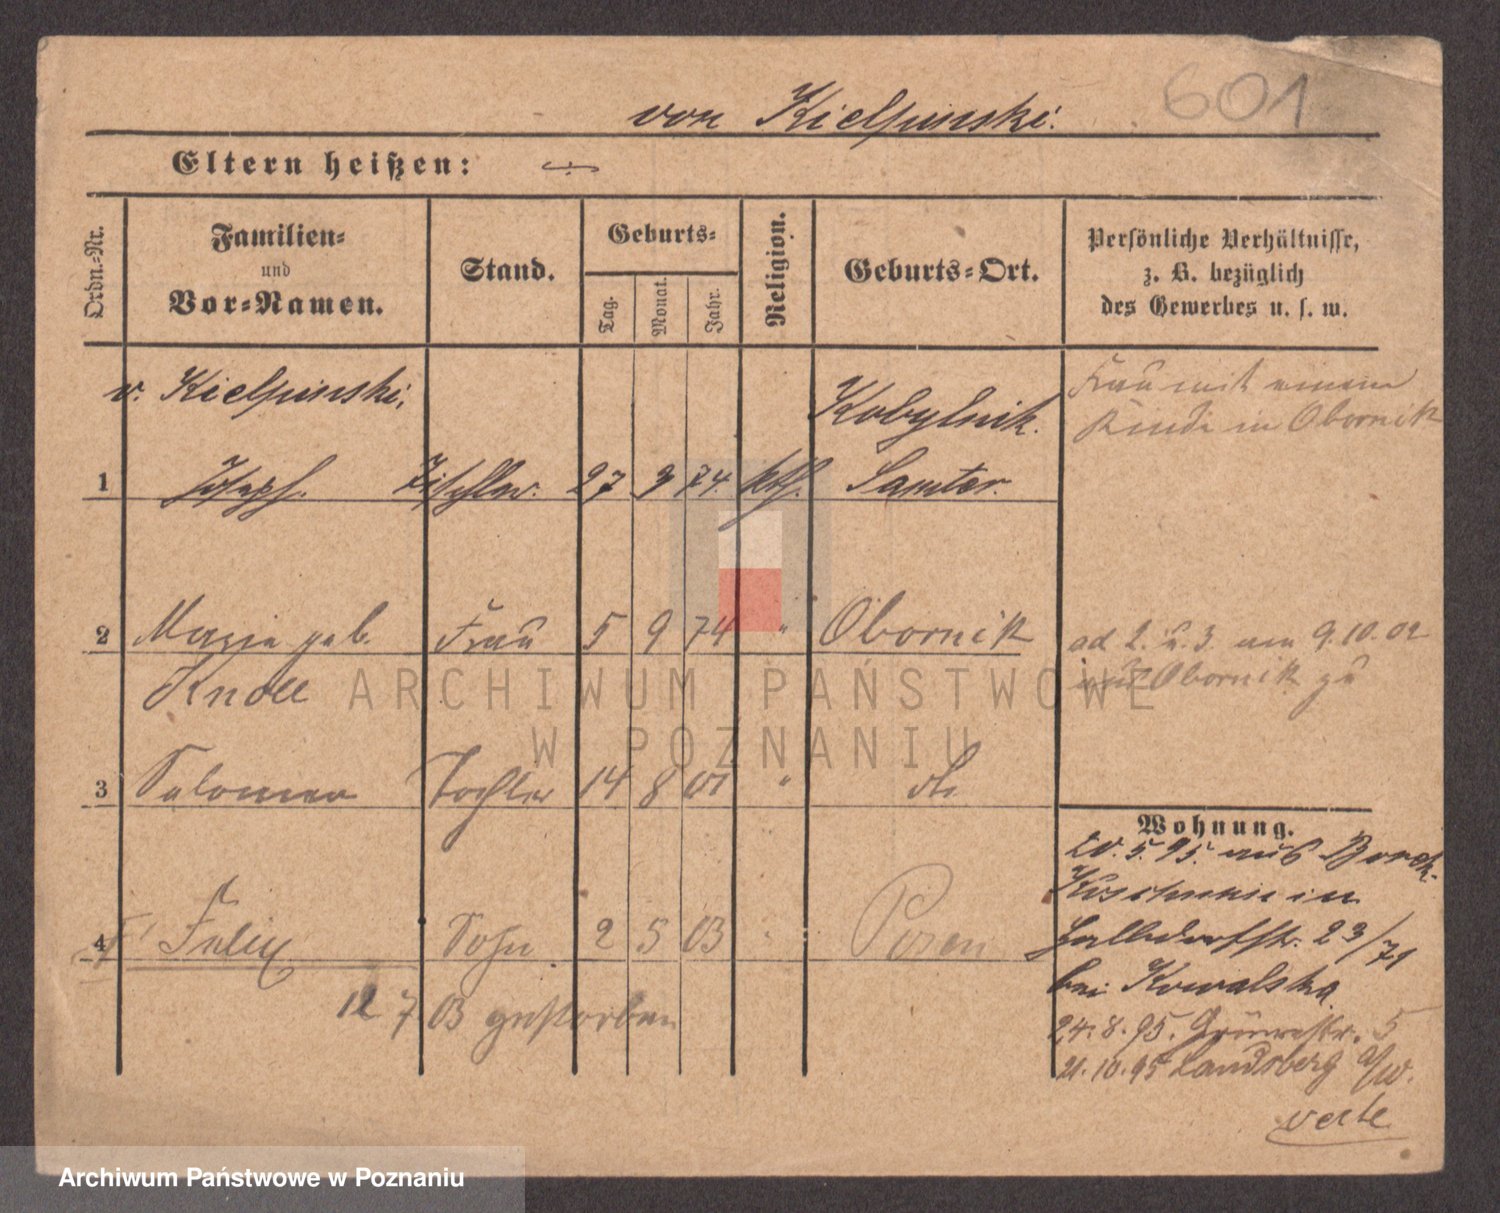 601
von Kielpinski.
Eltern heißen: ÷
Ordn.-Nr.
Familien-
und
Vor-Namen.
Stand.
Geburts-
Tag.
Monat.
Jahr.
Religion.
Geburts-Ort.
Persönliche Verhältnisse,
z. B. bezüglich
des Gewerbes u. s. w.
v. Kielpinski, Kobylnik. Frau mit einem
Kinde in Obornik
1 Joseph. Tischler. 27 3 74. kth. Samter.
2 Marie geb. Frau 5 9 74 " Obornik ad 2. u. 3. am 9.10.02
Knoll aus Obornik zu
ARCHIWUM PAŃSTWOWE
W POZNANIU
3 Salomea Tochter 14 8 01 " do.
4 Felix Sohn 2 5 03 " Posen
12 7 03 gestorben
Wohnung.
20. 5. 95. aus Borek
Koschmin in
Halldorfstr. 23/71
bei Kowalska
24. 8. 95. 5
21. 10. 95 Landsberg a/W.
verte
Archiwum Państwowe w Poznaniu